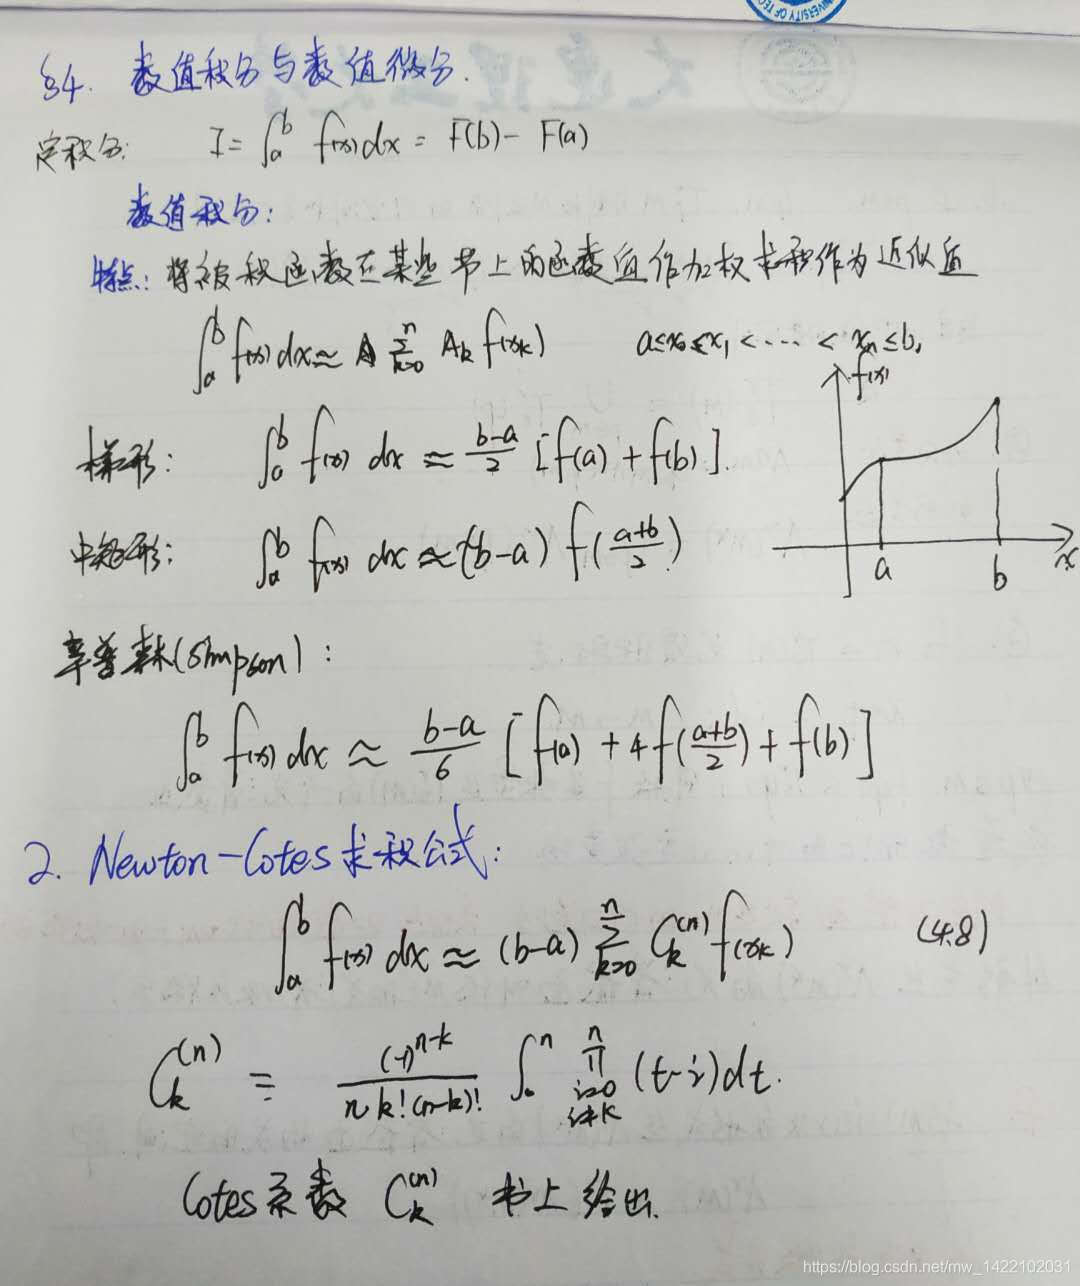 §4. 数值积分与数值微分.
定积分: I = ∫_a^b f(x)dx = F(b) - F(a)
数值积分:
特点: 将被积函数在某些节上的函数值作加权求和作为近似值
∫_a^b f(x)dx ≈ ∑_{k=0}^n A_k f(x_k)    a≤x_0≤x_1<……<x_n≤b,
f(x)
梯形: ∫_a^b f(x) dx ≈ \frac{b-a}{2} [f(a) + f(b)].
中矩形: ∫_a^b f(x) dx ≈ (b-a) f(\frac{a+b}{2})
a b x
辛普森(Simpson):
∫_a^b f(x) dx ≈ \frac{b-a}{6} [f(a) + 4f(\frac{a+b}{2}) + f(b)]
2. Newton-Cotes求积公式:
∫_a^b f(x) dx ≈ (b-a) ∑_{k=0}^n C_k^{(n)} f(x_k)    (4.8)
C_k^{(n)} = \frac{(-1)^{n-k}}{n k!(n-k)!} ∫_0^n ∏_{i=0, i≠k}^n (t-i)dt.
Cotes系数 C_k^{(n)} 书上给出.
https://blog.csdn.net/mw_1422102031